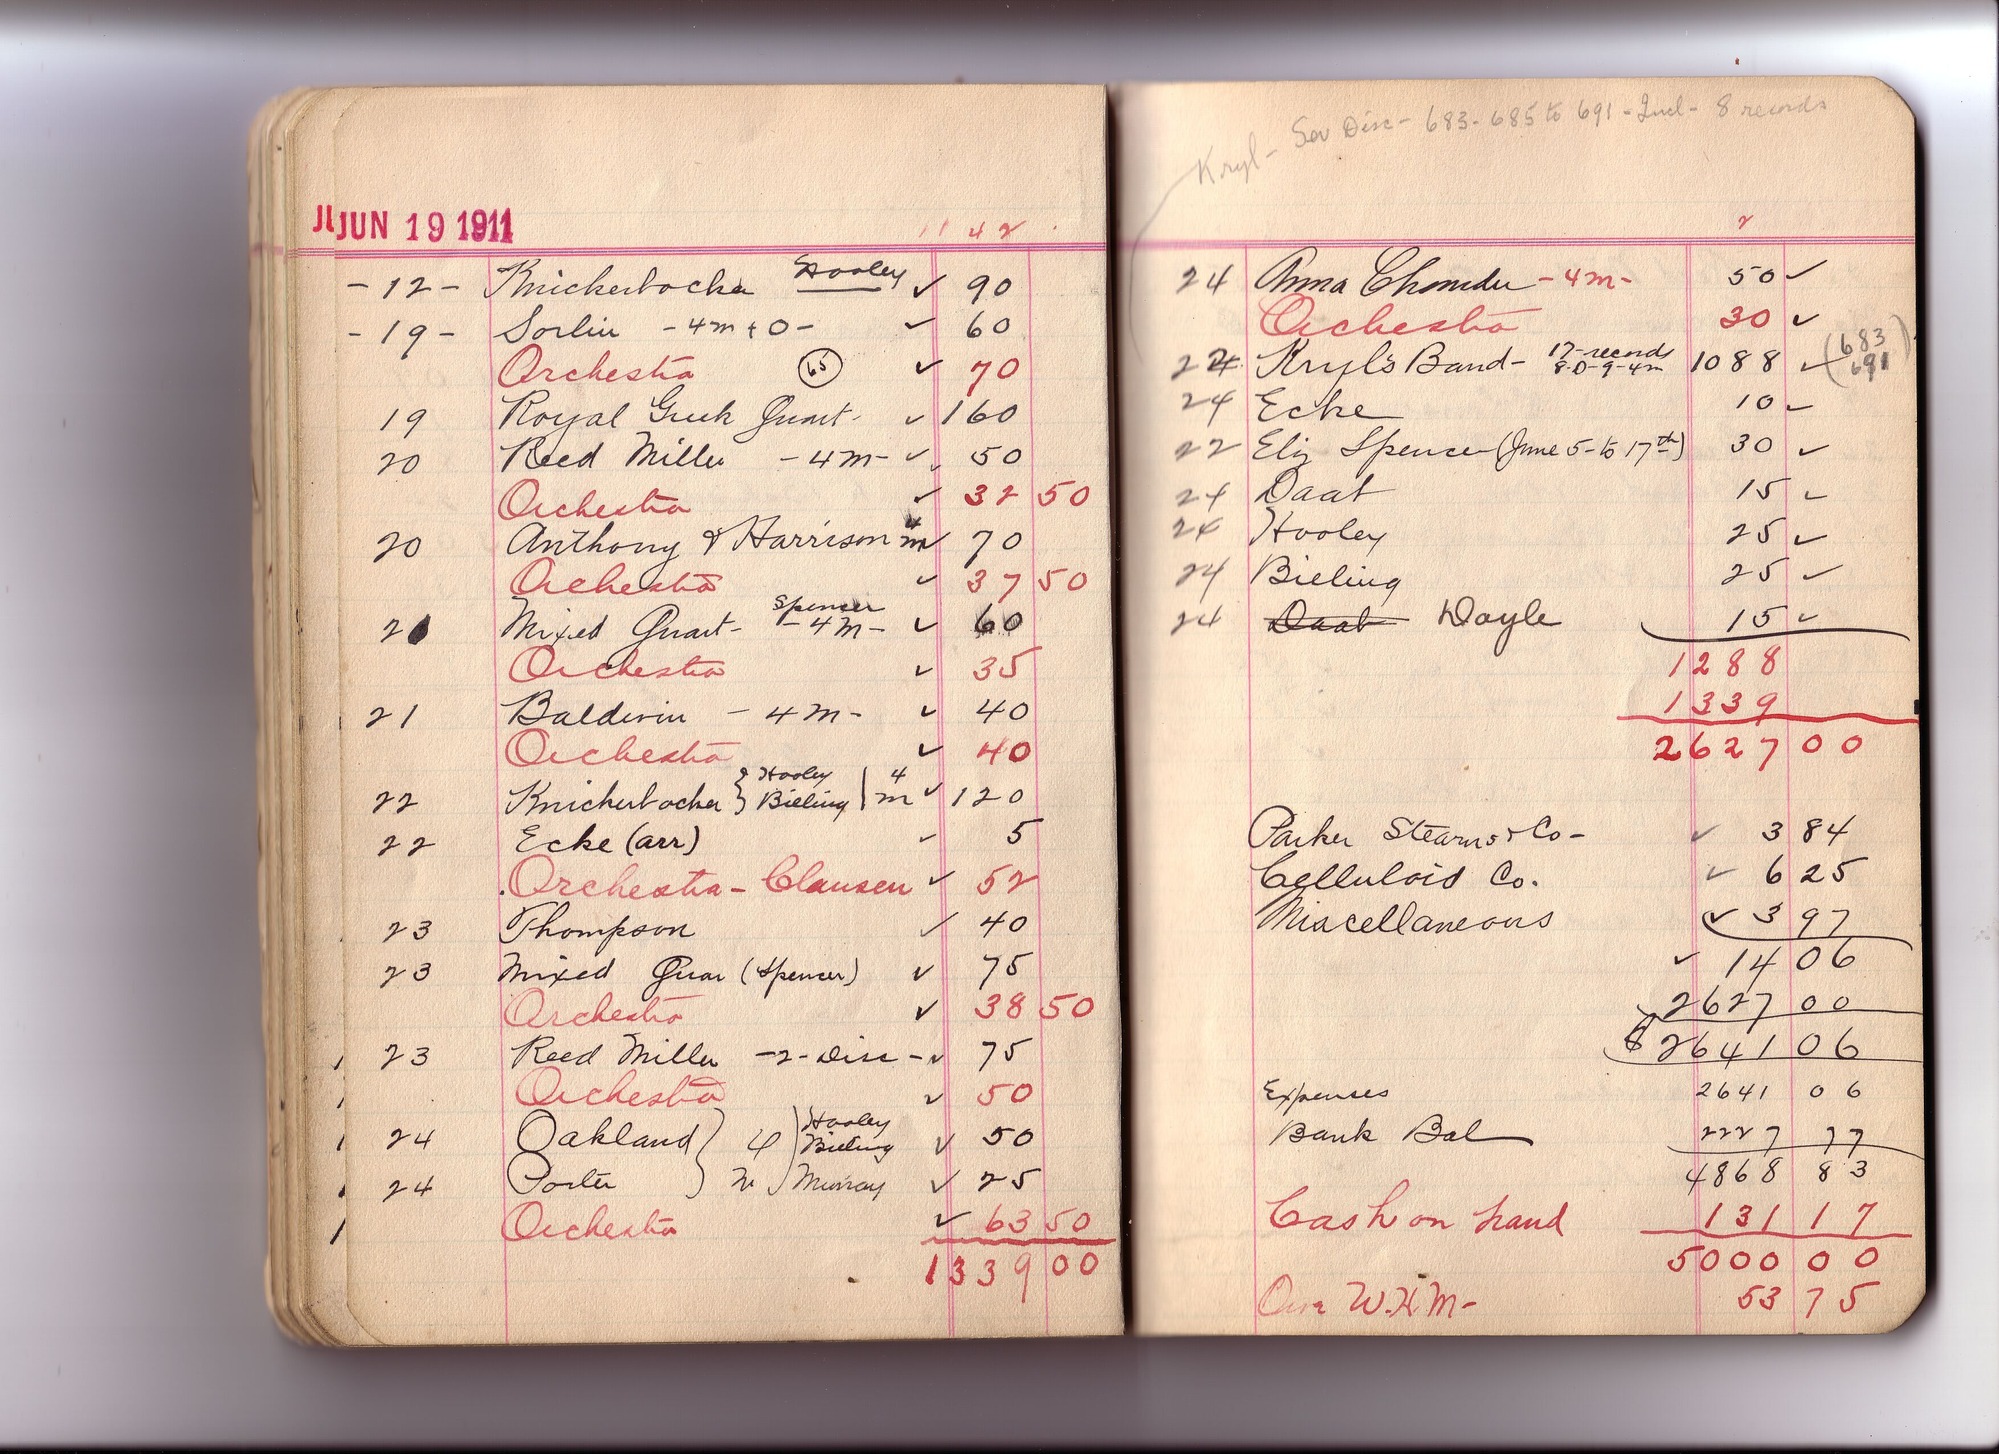 JUN 19 1911
42
-12- Knickerbocker Hooley ✓ 90
-19- Sorlin -4m+O- ✓ 60
Orchestra 65 ✓ 70
19 Royal Greek Quart- ✓ 160
20 Reed Miller -4M- ✓ 50
Orchestra ✓ 32 50
20 Anthony & Harrison 4 m ✓ 70
Orchestra ✓ 37 50
20 Mixed Quart- Spencer -4M- ✓ 60
Orchestra ✓ 35
21 Baldwin -4M- ✓ 40
Orchestra ✓ 40
22 Knickerbocker } Hooley Bieling | 4 m ✓ 120
22 Ecke (arr) ✓ 5
Orchestra - Clausen ✓ 52
23 Thompson ✓ 40
23 Mixed Quar (Spencer) ✓ 75
Orchestra ✓ 38 50
23 Reed Miller -2-Disc- ✓ 75
Orchestra ✓ 50
24 Oakland } 4 ) Hooley Bieling ✓ 50
24 Porter } M ) Murray ✓ 25
Orchestra ✓ 63 50
1339 00
Kryl- Disc- 683-685 to 691-Incl- 8 records
2
24 Anna Chandler -4m- 50 ✓
Orchestra 30 ✓
24 Kryl's Band- 17-records 8-D-9-4m 1088 ✓ (683 691)
24 Ecke 10 ✓
22 Eliz Spencer (June 5-to 17th) 30 ✓
24 Daab 15 ✓
24 Hooley 25 ✓
24 Bieling 25 ✓
24 Daab Doyle 15 ✓
1288
1339
2627 00
Parker Stearns & Co- ✓ 3 84
Celluloid Co. ✓ 6 25
Miscellaneous ✓ 3 97
✓ 14 06
2627 00
$ 2641 06
Expenses 2641 06
Bank Bal 2227 77
4868 83
Cash on hand 131 17
5000 00
W.H.M- 53 75